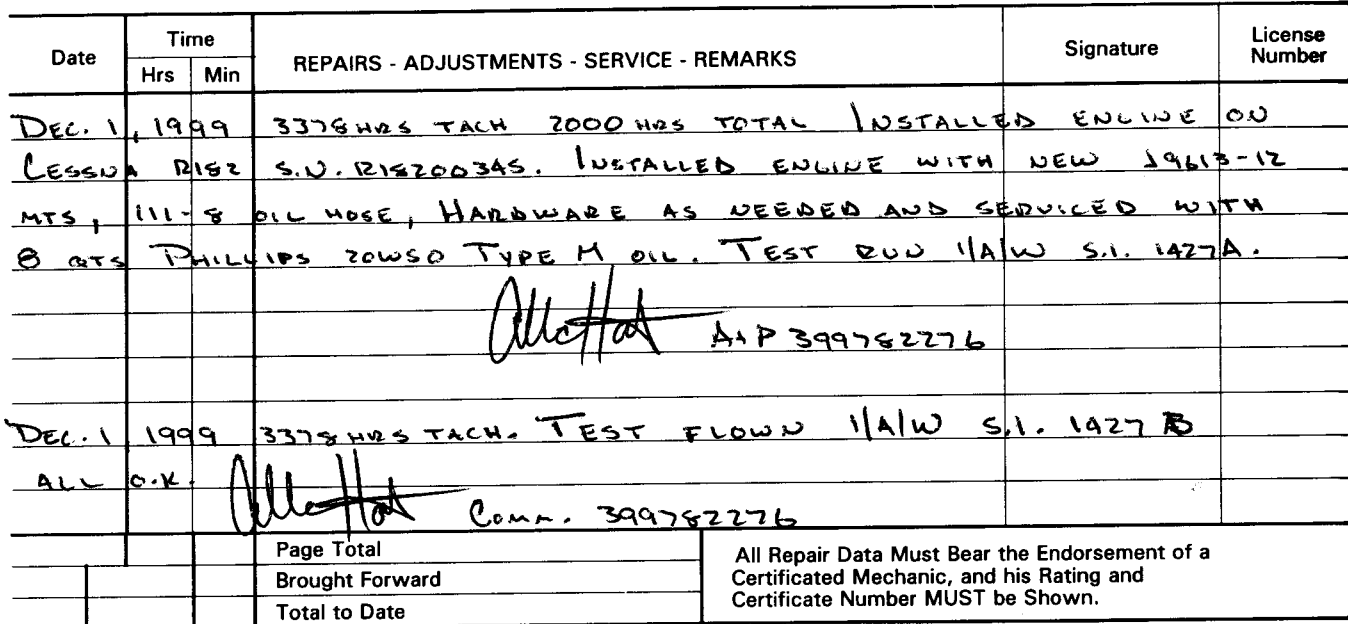 Date Time Hrs Min REPAIRS - ADJUSTMENTS - SERVICE - REMARKS Signature License Number
DEC. 1, 1999 3378 HRS TACH 2000 HRS TOTAL INSTALLED ENGINE ON
CESSNA R182 S.N. R18200345. INSTALLED ENGINE WITH NEW J9613-12
MTS, 111-8 OIL HOSE, HARDWARE AS NEEDED AND SERVICED WITH
8 QTS PHILLIPS 20W50 TYPE M OIL. TEST RUN I/A/W S.I. 1427A.
A&P 399782276
DEC. 1 1999 3378 HRS TACH. TEST FLOWN I/A/W S.I. 1427 B
ALL O.K.
COMM. 399782276
Page Total
Brought Forward
Total to Date
All Repair Data Must Bear the Endorsement of a
Certificated Mechanic, and his Rating and
Certificate Number MUST be Shown.